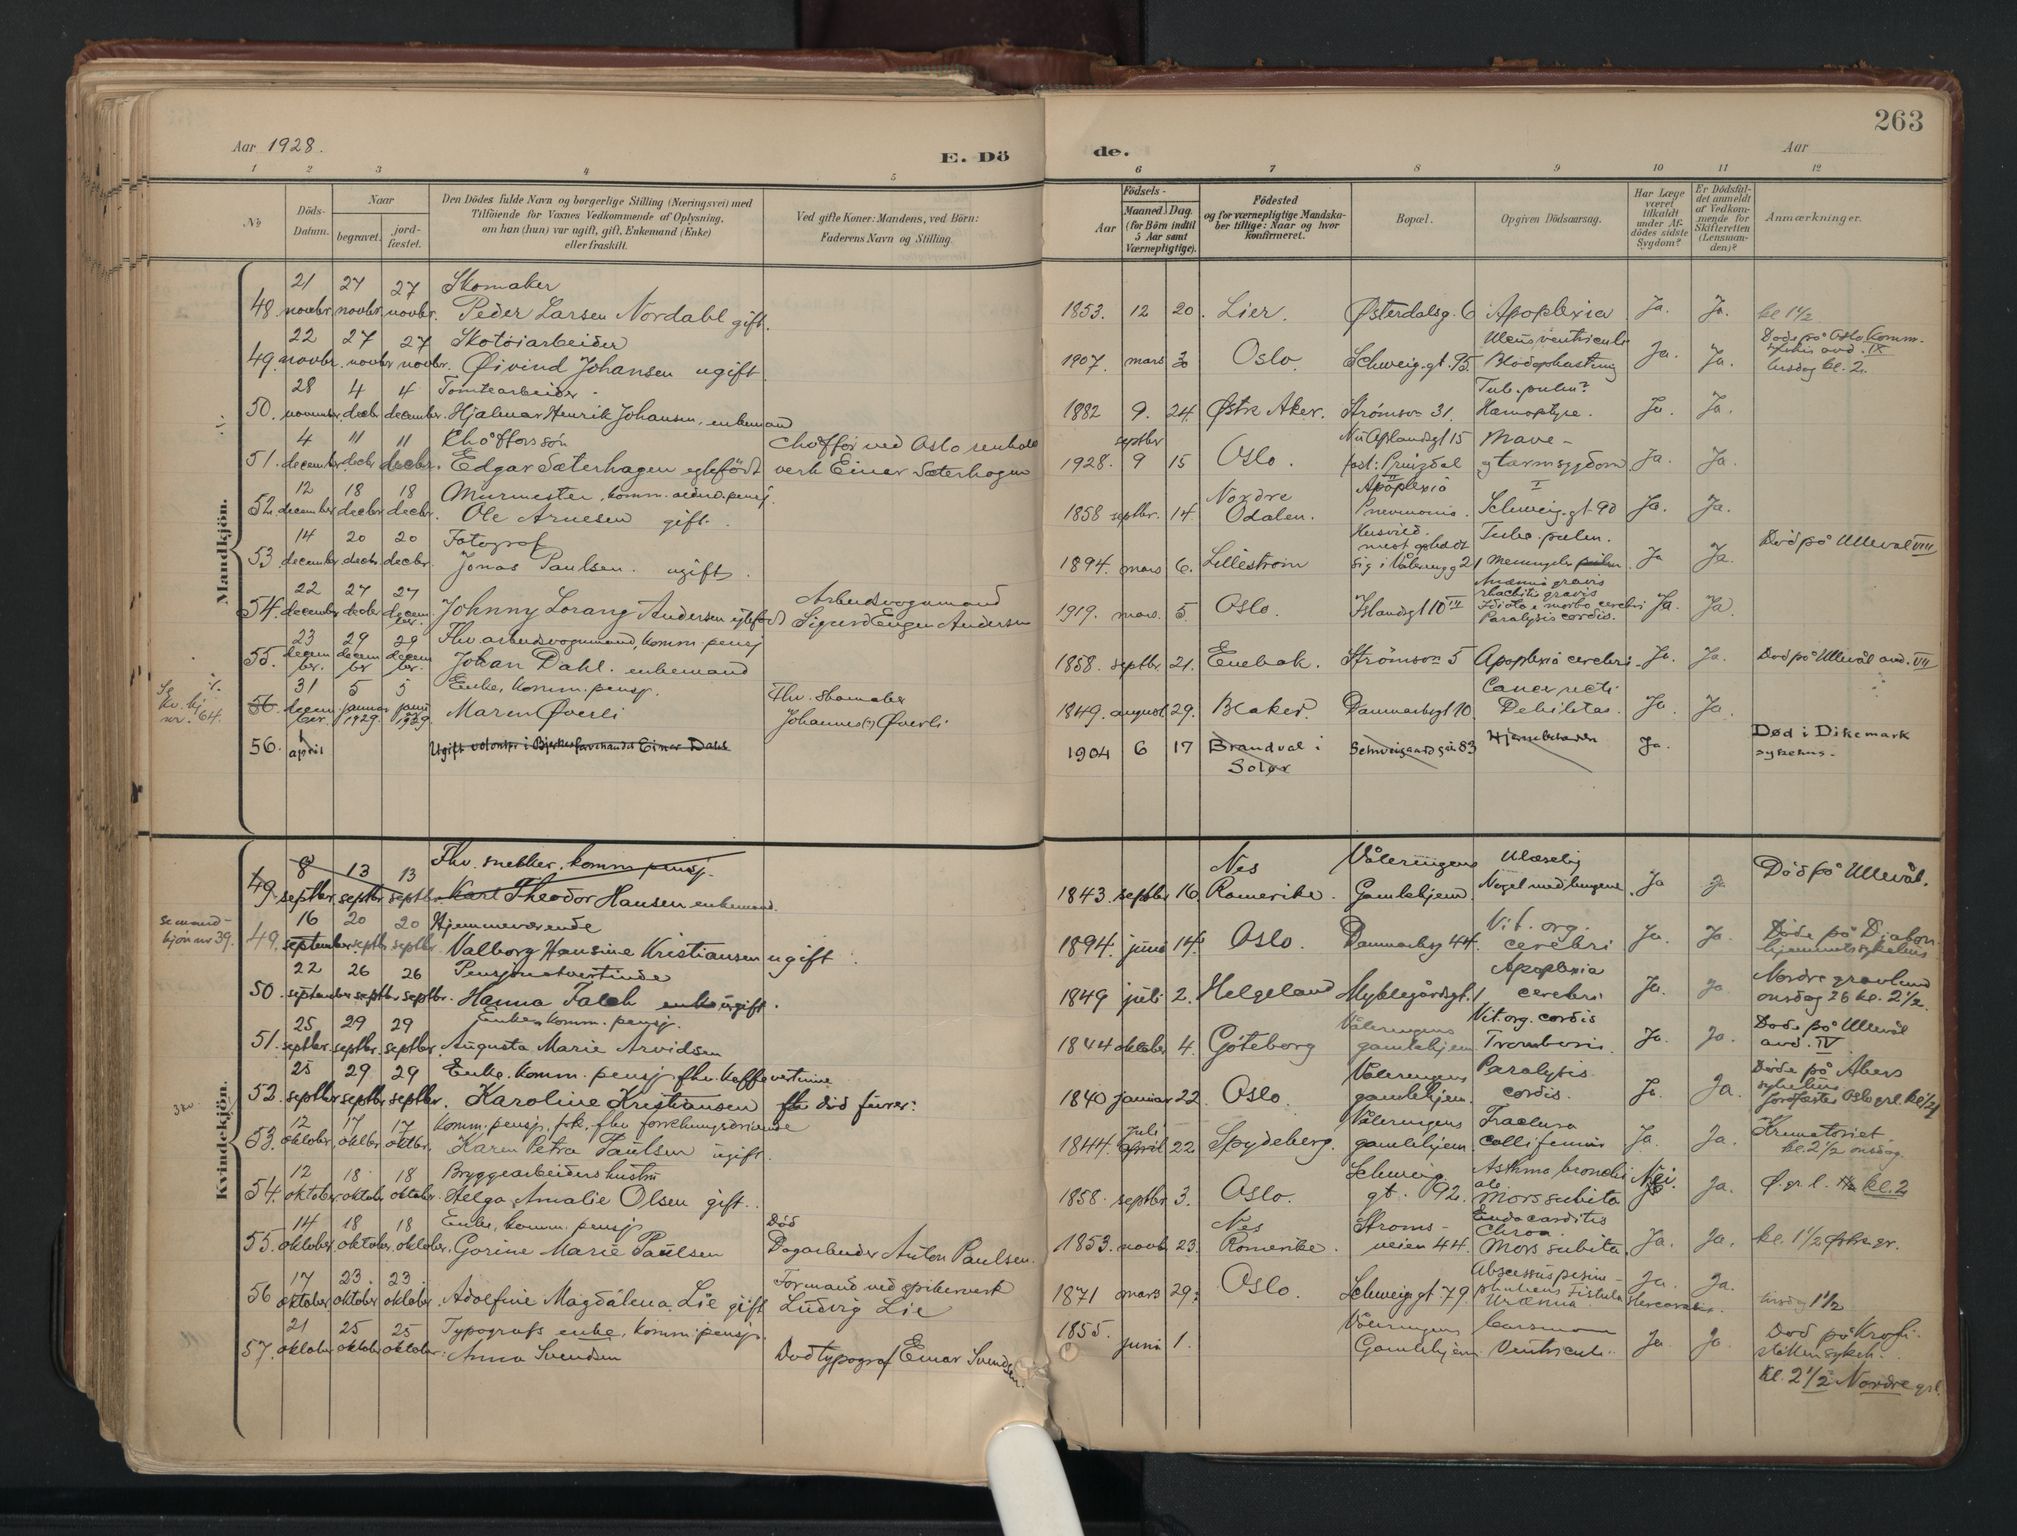 263
Aar 1928.
E. Dö
de.
Aar
1 2 3 4 5 6 7 8 9 10 11 12
No
Döds-Datum.
Naar
begravet.
jord-fæstet.
Den Dödes fulde Navn og borgerlige Stilling (Næringsvei) med
Tilföiende for Voxnes Vedkommende af Oplysning,
om han (hun) var ugift, gift, Enkemand (Enke)
eller fraskilt.
Ved gifte Koner: Mandens, ved Börn:
Faderens Navn og Stilling.
Födsels-
Aar
Maaned. Dag.
(for Börn indtil
5 Aar samt
Værnepligtige).
Födested
og for værnepligtige Mandska-
ber tillige: Naar og hvor
konfirmeret.
Bopæl.
Opgiven Dödsaarsag.
Har Læge
været
tilkaldt
under Af-
dödes sidste
Sygdom?
Er Dödsfal-
det anmeldt
af Vedkom-
mende for
Skifteretten
(Lensman-
den)?
Anmærkninger.
Mandkjön.
48. 21 novbr. 27 novbr. 27 novbr. Skomaker
Peder Larsen Nordahl gift. 1853. 12 20. Lier. Østerdalsg. 6 Apoplexia Ja. Ja. kl 1 1/2
49. 22 novbr. 27 novbr. 27 novbr. Skotøiarbeider
Øivind Johansen ugift. 1907. mars 3 Oslo. Schweig.gt. 95. Ulcus ventriculi
Ja. Ja. Døde på Oslo Komm.
avd. IX
kl. 2.
50. 28 november. 4 decbr 4 december. Tomtearbeider.
Hjalmar Henrik Johansen, enkemand 1882 9. 24. Østre Aker. Strømsv. 31. Tub. pulm?
Hæmoptyse. Ja. Ja.
51. 4 december. 11 decbr 11 decbr. Chófførsøn
Edgar Sæterhagen egtefødt chófför ved Oslo renhold
verk Einar Sæterhagen 1928. septbr 9 15 Oslo. 15
Mave-
og tarmsygdom Ja. Ja.
52. 12 december 18 decbr 18 decbr. Murmester, komm.
Ole Arnesen gift. 1858 septbr. 14. Nordre
Odalen. Apoplexia
Pneumonia. I
Schweig.gt. 90 Ja. Ja.
53 14 december 20 decbr 20 decbr. Fotograf
Jonas Paulsen. ugift. 1894. mars 6. Lillestrøm Husvild.
mest opholdt
sig i Vålerengg 21 Tube. pulm.
Ja Ja. Död på Ullevål VIII
54. 22 december 27 decbr 27 decem ber. Johnny Lorang Andersen egtefödt Arbeidsvognmand
Sigurd Eugen Andersen 1919. mars. 5. Oslo. Islandsgt 10 III Anæmia gravis
rhachitis gravis
Idiota e morbo cerebri
Paralysis cordis. Ja. Ja.
55. 23 decem ber. 29 decem ber 29 decem ber. Fhv. arbeidsvognmand, komm. pensj
Johan Dahl. enkemand 1858. septbr. 21. Enebak. Strømsvn 5 Apoplexia cerebri. Ja. Ja. Død på Ullevål avd. VII
Se
kv. kj.
nr. 64.
56. 31 decem ber. 5 januar 1929. 5 janu 1929. Enke, komm. pensj.
Maren Øverli Fhv. skomaker
Johannes (?) Øverli 1849. august 29. Blaker. Danmarksgt 10. Cancer recti
Debilitas. Ja. Ja.
56. 1 april Ugift volontør i Bjerke Einar Dahl 1904 6 17 Brandval i
Solør Schweigaardsgt. 83 Ja. Død i Dikemark
sykehus.
Kvindekjön.
49. 8 septbr 13 septbr 13 septbr. Fhv. snekker, komm pensj.
Karl Theodor Hansen enkemand. 1843. septbr 16. Nes
Romerike. Vålerengens
Gamlehjem. Ulæselig
Noget med lungene. Ja Ja Död på Ullevål.
se mand-
kjön nr 39.
49. 16 september 20 septbr 20 septbr Hjemmeværende
Valborg Hansine Kristiansen ugift. 1894. juni 14. Oslo. Danmarksg 44. Vit. org.
cerebri Ja. Ja. Døde på Diakon-
hjemmets sykehus
50. 22 september 26 septbr 26 septbr. Pensjonatvertinde
Hanna Falch enke ugift. 1849 juli 2. Helgeland Myklegårdsgt. 1 Apoplexia
cerebri Ja. Ja. Nordre gravlund
onsdag 26 kl. 2 1/2.
51. 25 septbr. 29 septbr. 29 septbr. Enke, komm. pensj.
Augusta Marie Arvidsen 1844 oktober 4. Göteborg Vålerengens
gamlehjem. Vit. org. cordis
Trombosis. Ja. Ja. Døde på Ullevål
avd. IV
52. 25 septbr 29 septbr 29 septbr. Enke. komm. pensj fhv. kaffevertinne
Karoline Kristiansen 1840 januar 22. Oslo. Vålerengens
gamlehjem. Paralysis
cordis. Ja. Ja. Døde på Akers
sykehus
Oslo grl. kl 1 1/2
53. 12 oktober 17 oktbr. 17 oktbr. Komm. pensj, frk, fhv forretningsdrivende
Karen Petra Paulsen ugift. 1844. Juli April 22 Spydeberg. Vålerengens
gamlehjem Fractura
colli femoris Ja. Ja. Krematoriet.
kl. 2 1/2 onsdag.
54. 12 oktober 18 oktober 18 oktober. Bryggearbeiders hustru
Helga Amalie Olsen gift. 1858. septbr 3. Oslo. Schweig.
gt. 92. Asthma bronchi
ale
Mors subita Nei. Ja. Ø. grl. kl. 2
55. 14 oktober 18 oktober 18 oktober. Enke, komm. pensj
Gorine Marie Paulsen Död
Dagarbeider Anton Paulsen. 1853. novb. 23. Nes
Romerike. Strøms-
veien 44. Endocarditis
Chron.
Mors subita. Ja. Ja. kl. 1 1/2 Østre gr.
56 17 oktober 23. oktober 23. oktober. Adolfine Magdalena Lie gift Formand ved spikerverk
Ludvig Lie 1871 mars 29. Oslo. Schweig.gt 79.
Fistula stercoralis.
Uræmia. Ja. Ja. 1 1/2
57. 21 oktober 25 oktober 25 oktober. Typografs enke, komm. pensj.
Anna Svendsen Död typograf Einar Svendsen. 1855. juni 1. Vålerengens
Gamlehjem
Ventriculi. Ja. Ja. Död på Krofi
støtten sykeh.
kl. 2 1/2 Nordre grl.